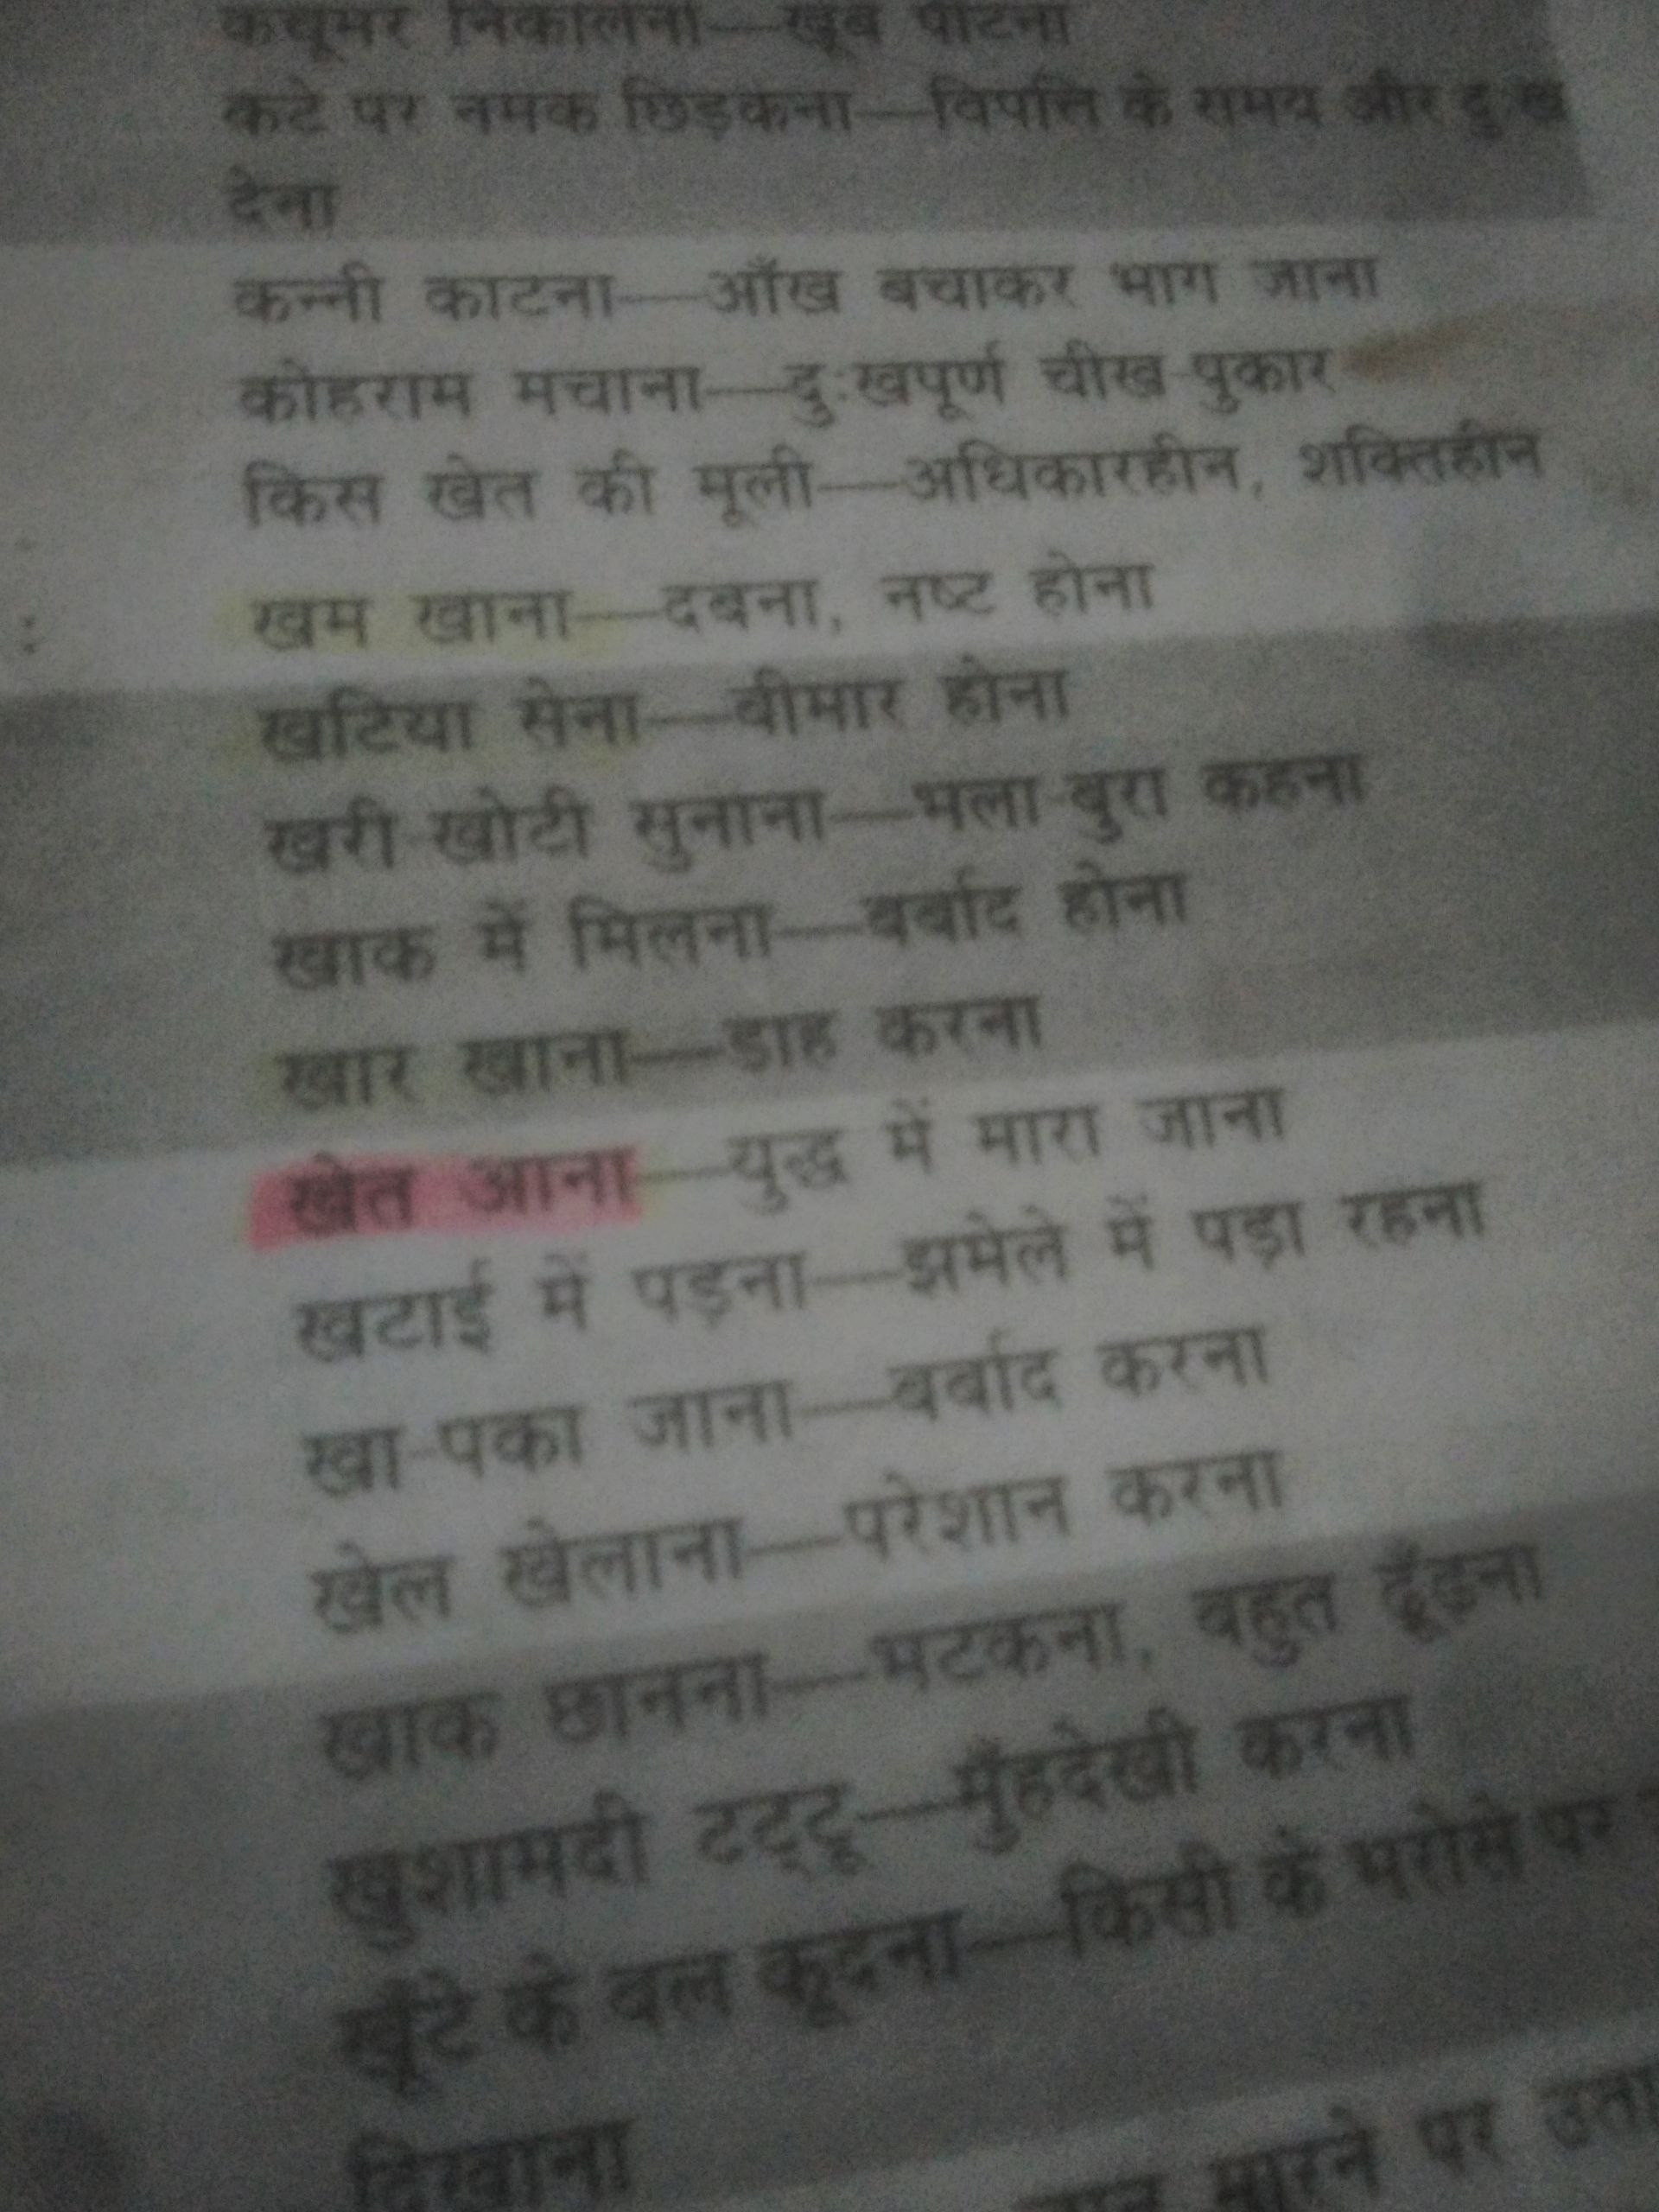 कचूमर निकालना—खूब पीटना
कटे पर नमक छिड़कना—विपत्ति के समय और दुःख
देना
कन्नी काटना—आँख बचाकर भाग जाना
कोहराम मचाना—दुःखपूर्ण चीख-पुकार
किस खेत की मूली—अधिकारहीन, शक्तिहीन
खम खाना—दबना, नष्ट होना
खटिया सेना—बीमार होना
खरी-खोटी सुनाना—भला-बुरा कहना
खाक में मिलना—बर्बाद होना
खार खाना—डाह करना
खेत आना—युद्ध में मारा जाना
खटाई में पड़ना—झमेले में पड़ा रहना
खा-पका जाना—बर्बाद करना
खेल खेलाना—परेशान करना
खाक छानना—भटकना, बहुत ढूँढ़ना
खुशामदी टट्टू—मुँहदेखी करना
खूँटे के बल कूदना—किसी के भरोसे पर
दिखाना
मारने पर